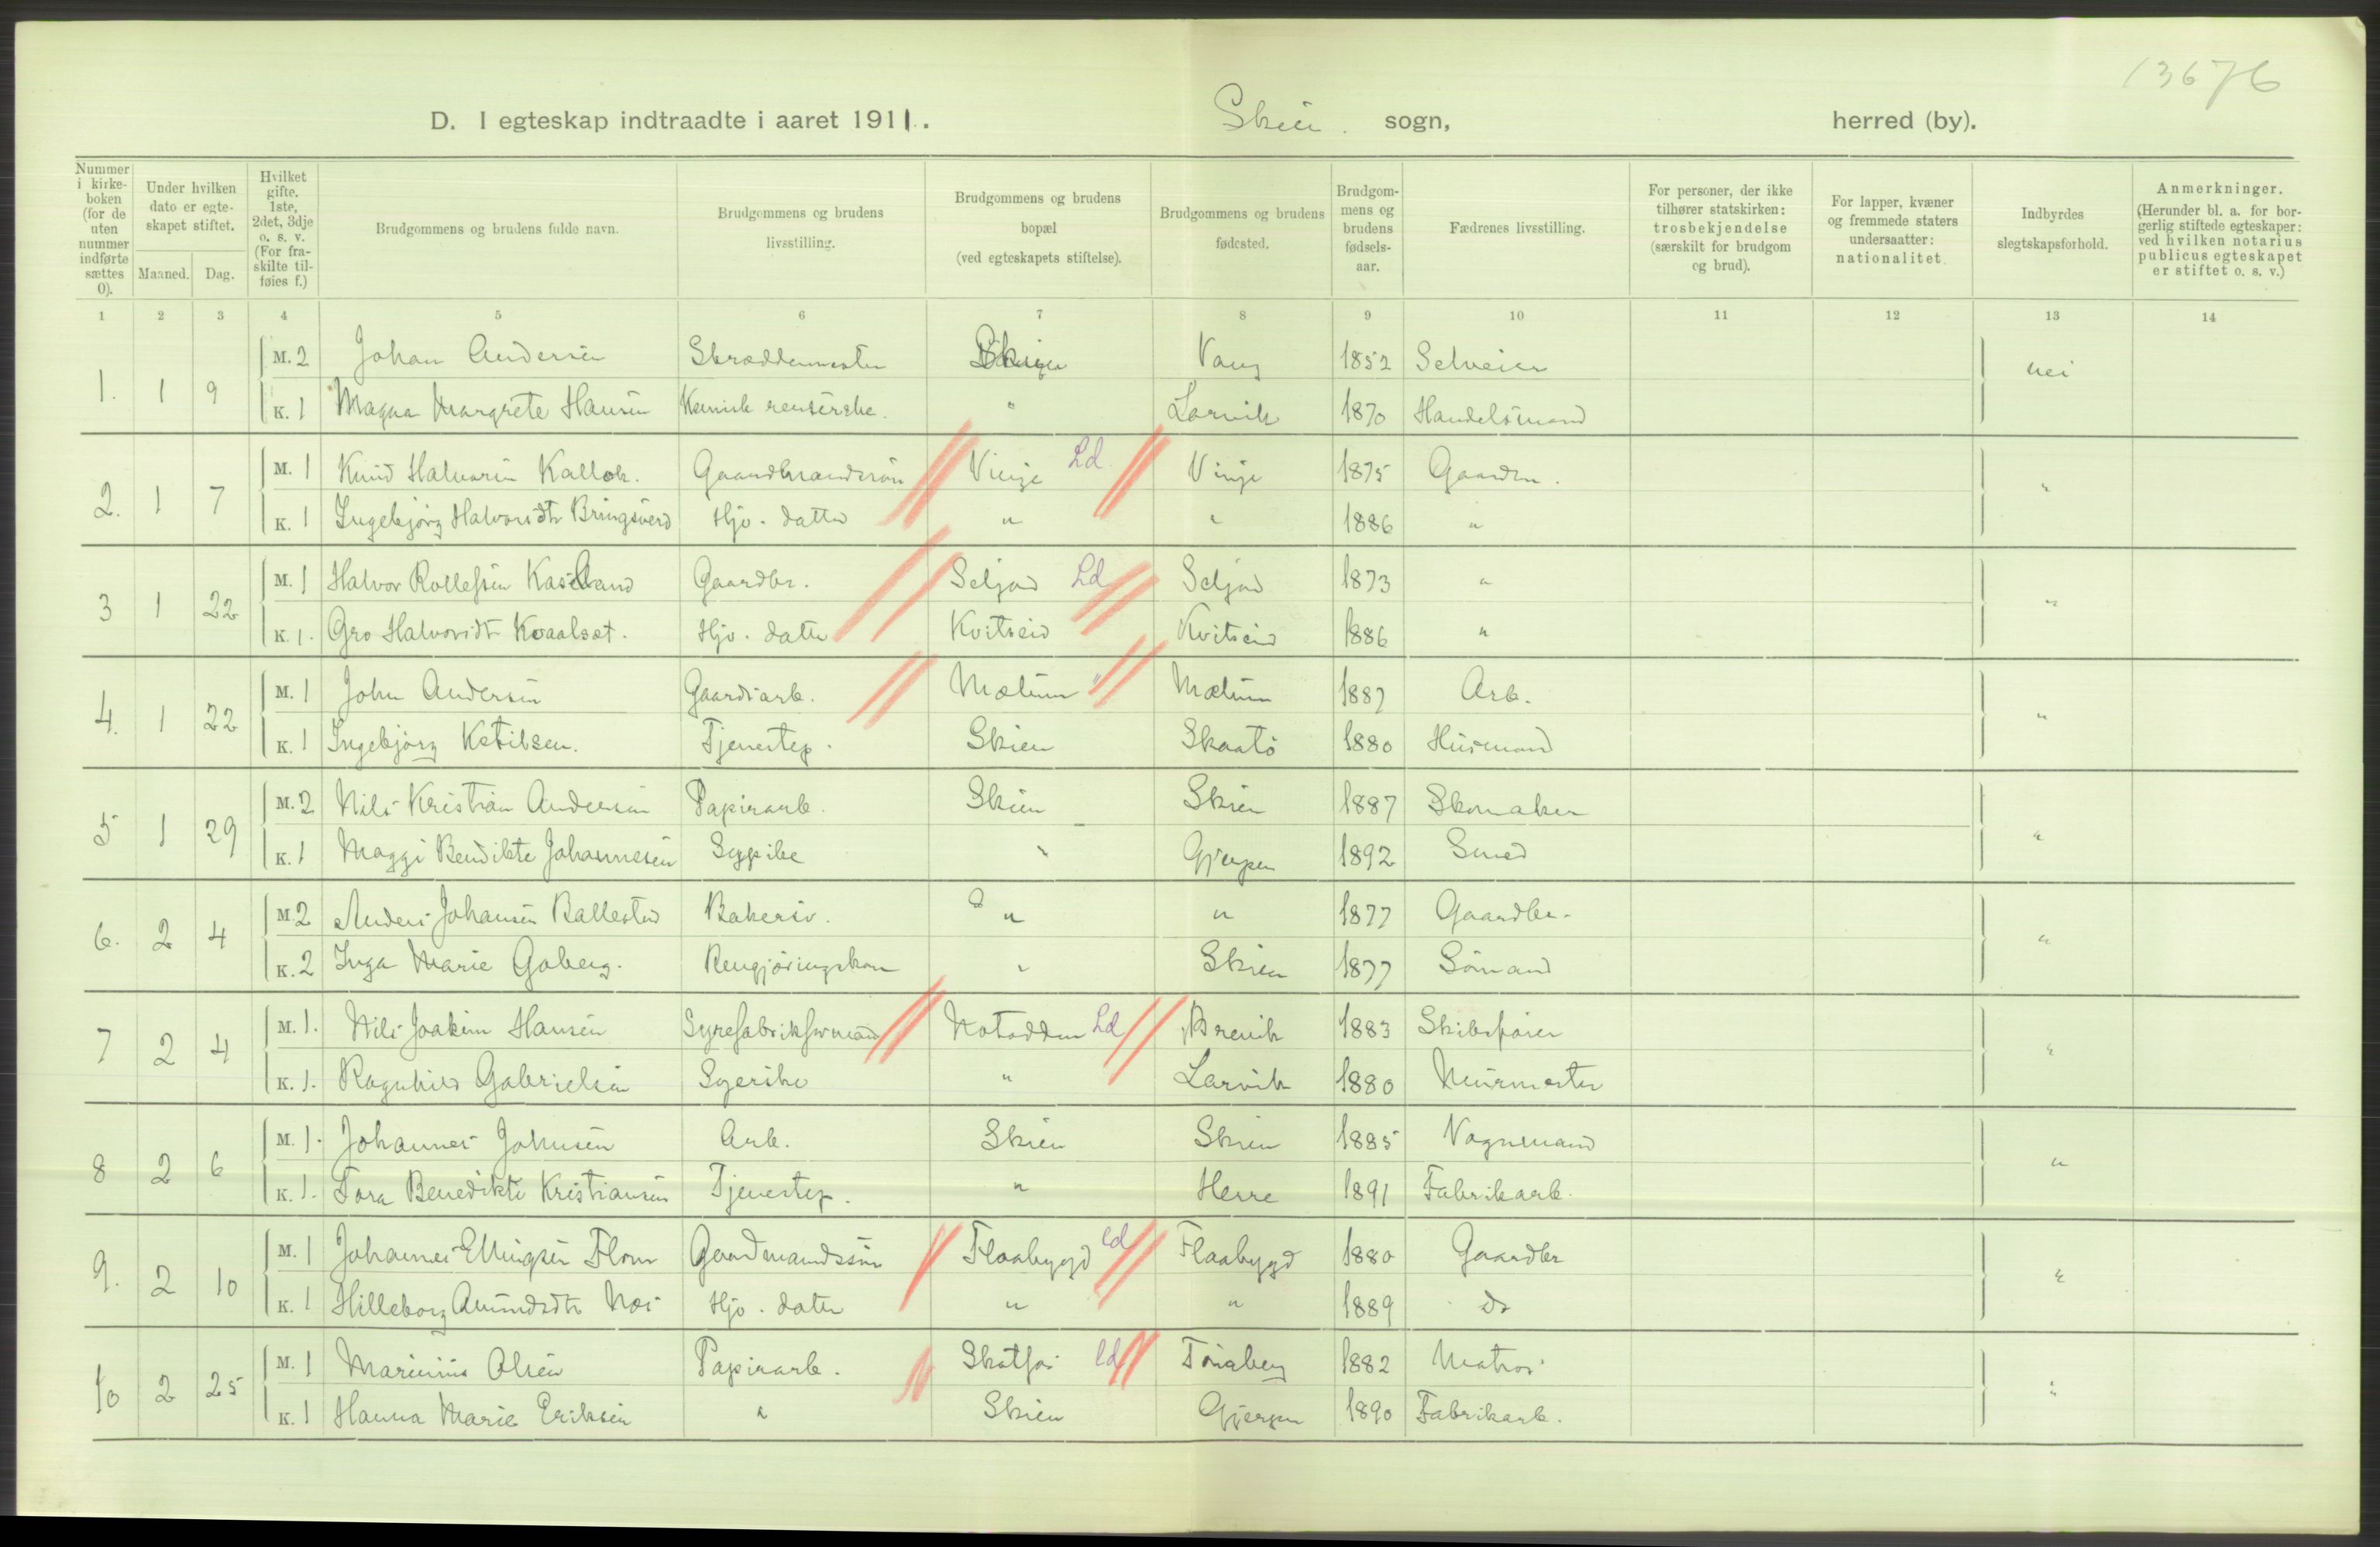 13676
D. I egteskap indtraadte i aaret 1911. Skien. sogn, herred (by).
Nummer i kirkeboken (for de uten nummer indførte sættes 0). Under hvilken dato er egteskapet stiftet. Maaned. Dag. Hvilket gifte. 1ste, 2det, 3dje o. s. v. (For fraskilte tilføies f.) Brudgommens og brudens fulde navn. Brudgommens og brudens livsstilling. Brudgommens og brudens bopæl (ved egteskapets stiftelse). Brudgommens og brudens fødested. Brudgommens og brudens fødselsaar. Fædrenes livsstilling. For personer, der ikke tilhører statskirken: trosbekjendelse (særskilt for brudgom og brud). For lapper, kvæner og fremmede staters undersaatter: nationalitet Indbyrdes slegtskapsforhold. Anmerkninger. (Herunder bl. a. for borgerlig stiftede egteskaper: ved hvilken notarius publicus egteskapet er stiftet o. s. v.)
1 2 3 4 5 6 7 8 9 10 11 12 13 14
M. 2 Johan Andersen Skræddermester Skien Vang 1852 Selveier
1. 1 9 nei
K. 1 Magna Margrete Hansen Kemisk renserske. " Larvik 1870 Handelsmand
M. 1 Knud Halvorsen Kallok. Gaardmandssøn Vinje Ld Vinje 1875 Gaardm.
2. 1 7 "
K. 1 Ingebjørg Halvorsdtr Bringsverd Hjv. datter " " 1886 "
M. 1 Halvor Rollefsen Kasland Gaardbr. Seljord Ld Seljord 1873 "
3 1 22 "
K. 1. Gro Halvorsdtr Kvaalset. Hjv. datter Kvitseid Kvitseid 1886 "
M. 1 John Andersen Gaardsarb. Mælum " Mælum 1887 Arb.
4. 1 22 "
K. 1 Ingebjørg Ketilsen. Tjenestep. Skien Skaatø 1880 Husmand
M. 2 Nils Kristian Andersen Papirarb. Skien Skien 1887 Skomaker
5 1 29 "
K. 1 Maggi Bendikte Johannesen Sypike " Gjerpen 1892 Smed
M. 2 Anders Johansen Ballestad Bakersv. " " 1877 Gaardbr.
6. 2 4 "
K. 2 Inga Marie Goberg. Rengjøringskone " Skien 1877 Sømand
M. 1. Nils Joakim Hansen Syrefabrikformand Notodden Ld Brevik 1883 Skibsfører
7 2 4 "
K. 1. Ragnhild Gabrielsen Syerske " Larvik 1880 Murmester
M. 1. Johannes Johnsen Arb. Skien Skien 1885 Vognmand
8 2 6 "
K. 1. Tora Benedikte Kristiansen Tjenestep. " Herre 1891 Fabrikarb.
M. 1 Johannes Ellingsen Flom Gaardmandssøn Flaabygd Ld Flaabygd 1880 Gaardbr
9. 2 10 "
K. 1 Hilleborg Amundsdtr Næs Hjv. datter " " 1889 do
M. 1 Marinius Olsen Papirarb. Skotfos Ld Tønsberg 1882 Matros
10 2 25 "
K. 1 Hanna Marie Eriksen " Skien Gjerpen 1890 Fabrikarb.